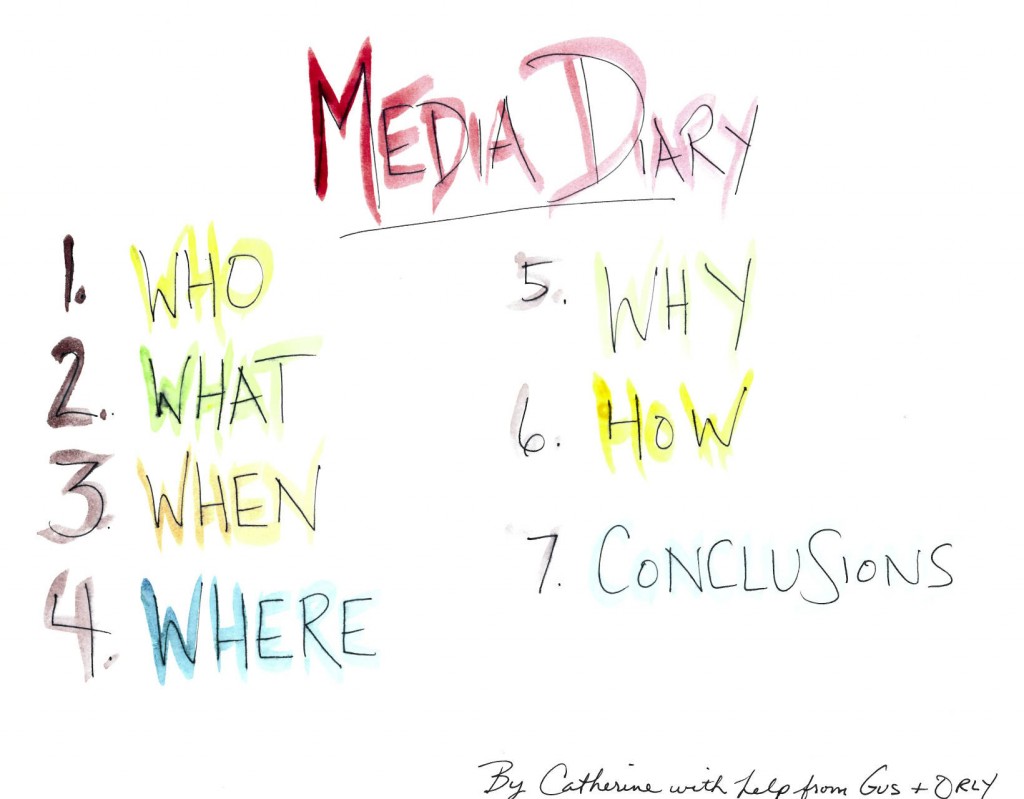 MEDIA DIARY
1. WHO
2. WHAT
3. WHEN
4. WHERE
5. WHY
6. HOW
7. CONCLUSIONS
By Catherine with help from GUS + ORLY